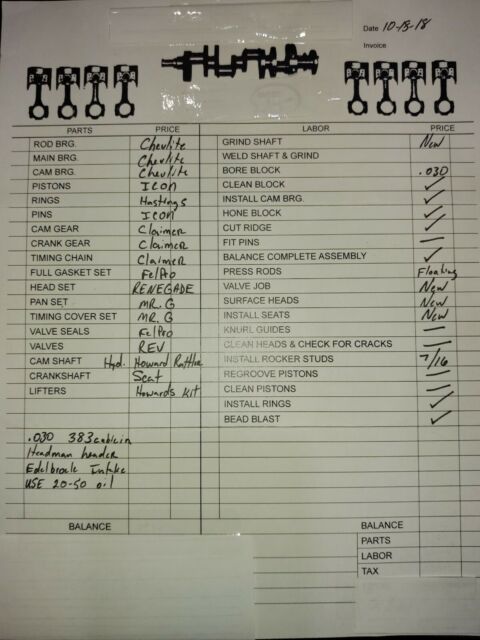 Date 10-18-18
Invoice
PARTS PRICE LABOR PRICE
ROD BRG. Chevlite GRIND SHAFT New
MAIN BRG. Chevlite WELD SHAFT & GRIND
CAM BRG. Chevlite BORE BLOCK .030
PISTONS ICON CLEAN BLOCK ✓
RINGS Hastings INSTALL CAM BRG. ✓
PINS ICON HONE BLOCK ✓
CAM GEAR Claimer CUT RIDGE ✓
CRANK GEAR Claimer FIT PINS —
TIMING CHAIN Claimer BALANCE COMPLETE ASSEMBLY ✓
FULL GASKET SET FelPro PRESS RODS Floating
HEAD SET RENEGADE VALVE JOB New
PAN SET MR. G SURFACE HEADS New
TIMING COVER SET MR. G INSTALL SEATS New
VALVE SEALS FelPro KNURL GUIDES —
VALVES REV CLEAN HEADS & CHECK FOR CRACKS —
CAM SHAFT Hyd. Howard Rattler INSTALL ROCKER STUDS 7/16
CRANKSHAFT Scat REGROOVE PISTONS —
LIFTERS Howards Kit CLEAN PISTONS —
INSTALL RINGS ✓
BEAD BLAST ✓
.030 383
Headman header
Edelbrock Intake
USE 20-50 oil
BALANCE BALANCE
PARTS
LABOR
TAX